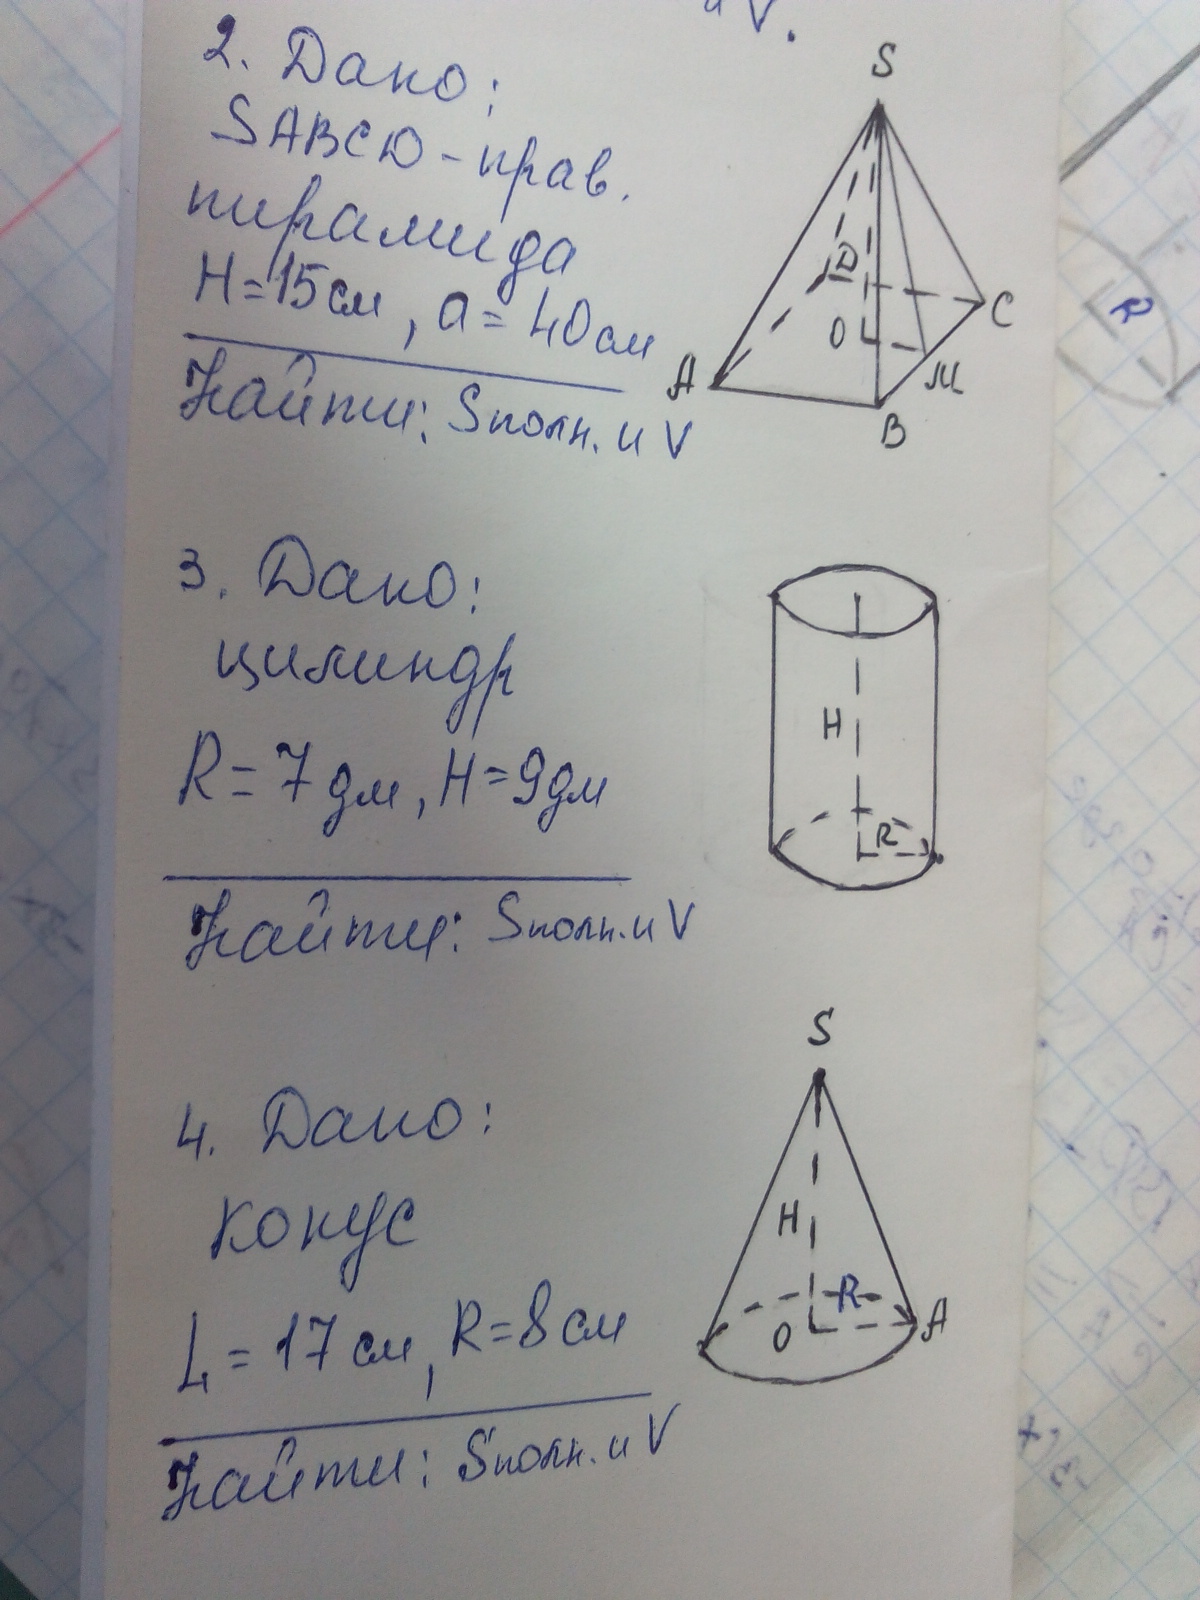 и V.
2. Дано:
SABCD - прав.
пирамида
H = 15 см, a = 40 см
Найти: Sполн. и V
S
D
O
C
A
M
B
R
3. Дано:
цилиндр
R = 7 дм, H = 9 дм
Найти: Sполн. и V
H
R
4. Дано:
конус
L = 17 см, R = 8 см
Найти: Sполн. и V
S
H
R
O
A